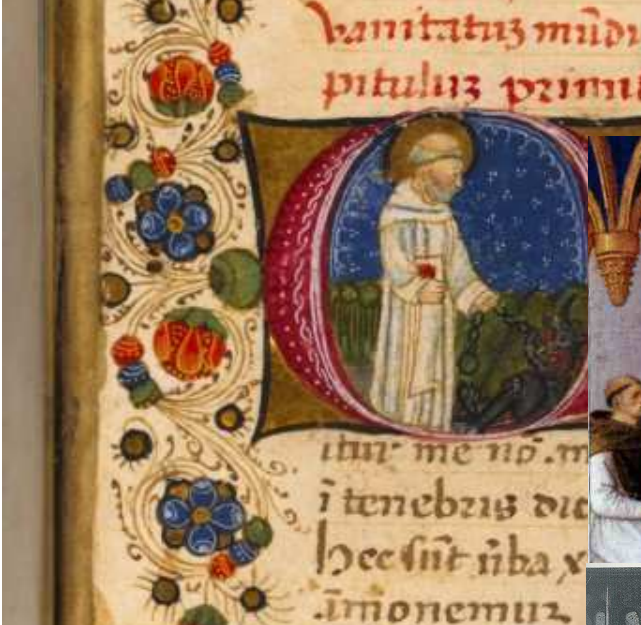 vanitatuʒ mũdi
pituluʒ primu
itur me nõ .m
ĩ tenebris dic
hec sũt ũba x
.ãmonemur